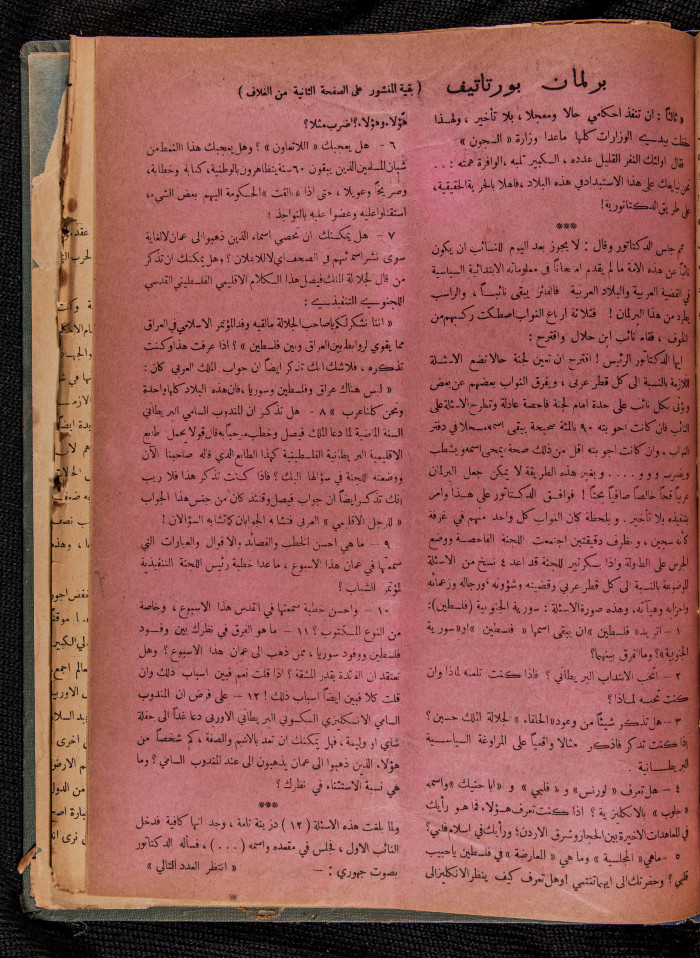 برلمان بورتاتيف
( بقية المنشور على الصفحة الثانية من الغلاف )
« ثالثاً : ان تنفذ احكامي حالا ومعجلا ، بلا تأخير ، ولهذا
حفظت بيدي الوزارات كلها ماعدا وزارة « السجون »
قال اولئك النفر القليل عدده ، الكبير قلبه ، الوافرة همته ! . .
نحن نبايعك على هذا الاستبداد في هذه البلاد ، فاهلا بالحرية الحقيقية ،
على طريق الدكتاتورية !
***
ثم جلس الدكتاتور وقال : لا يجوز بعد اليوم للنائب ان يكون
نائباً عن هذه الامة ما لم يقدم امتحاناً في معلوماته الابتدائية السياسية
في القضية العربية والبلاد العربية فالفائز يبقى نائبـاً ، والراسب
يطرد من هذا البرلمان ! فثلاثة ارباع النواب اصطكت ركبهم من
الخوف ، فقام نائب ابن حلال واقترح :
ايها الدكتاتور الرئيس ! اقترح ان تعين لجنة حالا تضع الاسئلة
اللازمة بالنسبة الى كل قطر عربي ، ويفرق النواب بعضهم عن بعض
ويؤتى بكل نائب على حدة امام لجنة فاحصة عادلة وتطرح الاسئلة على
النائب فان كانت اجوبته ٩٠ بالمئة صحيحة يبقى اسمه مسجلا في دفتر
النواب . وان كانت اجوبته اقل من ذلك صحة يمحى اسمه ويشطب
ويضرب و و و . . . . وبغير هذه الطريقة لا يمكن جعل البرلمان
عربياً قحاً خالصاً صافياً بحتاً ! فوافق الدكتاتور على هذا وامر
بتنفيذه بلا تأخير . وبلحظة كان النواب كل واحد منهم في غرفة
كأنه سجين ، وبظرف دقيقتين اجتمعت اللجنة الفاحصة ووضع
الجرس على الطاولة واذا بسكرتير اللجنة قد اعد ٤ نسخ من الاسئلة
الموضوعة بالنسبة الى كل قطر عربي وقضيته وشؤونه ورجاله وزعمائه
واحزابه وهيآته ، وهذه صورة الاسئلة : سورية الجنوبية ( فلسطين ) :
١ – اتريد « فلسطين » ان يبقى اسمها « فلسطين » او « سورية
الجنوبية » ؟ وما الفرق بينهما ؟
٢ – أتحب الانتداب البريطاني ؟ فاذا كنت تلعنه لماذا وان
كنت تحبه لماذا ؟
٣ – هل تذكر شيئاً من وعود « الحلفاء » لجلالة الملك حسين ؟
اذا كنت تذكر فاذكر مثالا واقعياً على المراوغة السياسية
البريطانية .
٤ – هل تعرف « لورنس » و « فلبي » و « ابا حنيك » واسمه
« جلوب » بالانكليزية ؟ اذا كنت تعرف هؤلاء ، فما هو رأيك
في المعاهدات الاخيرة بين الحجاز وشرق الاردن ؟ ورأيك في اسلام فلبي ؟
٥ – ماهي « المجلسية » وما هي « المعارضة » في فلسطين ياحبيب
قلبي ؟ وحضرتك الى ايهما تنتمي ! وهل تعرف كيف ينظر الانكليز الى
هؤلاء وهؤلاء ؟ اضرب مثلا ؟
٦ – هل يعجبك « اللاتعاون » ؟ وهل يعجبك هذا النمط من
شبان المسلمين الذين يبقون ٦٠ سنة يتظاهرون بالوطنية ، كتابة وخطابة ،
وصريخاً وعويلا ، حتى اذا « القت » الحكومة اليهم بعض الشيء ،
استقتلوا عليه وعضوا عليه بالنواجذ !
٧ – هل يمكنك ان تحصي اسماء الذين ذهبوا الى عمان لا لغاية
سوى نشر اسمائهم في الصحف اي لا للاعلان ؟ وهل يمكنك ان تذكر
من قال لجلالة الملك فيصل هذا الكلام الاقليمي الفلسطيني القدسي
اللجنوبي التنفيذي :
« اننا نشكر لكم ياصاحب الجلالة مالقيه وفد المؤتمر الاسلامي في العراق
مما يقوي لروابط بين العراق وبين فلسطين » ؟ اذا عرفت هذا وكنت
تذكره ، فلا شك انك تذكر ايضاً ان جواب الملك العربي كان :
« ليس هناك عراق وفلسطين وسوريا ، فان هذه البلاد كلها واحدة
ونحن كلنا عرب » ٨ – هل تذكر ان المندوب السامي البريطاني
السنة الماضية لما دعا الملك فيصل وخطب مرحباً به قال قولا يحمل طابع
الاقليمية البريطانية الفلسطينية كهذا الطابع الذي قاله صاحبنا الآن
ووضعته اللجنة في سؤالها اليك ؟ فاذا كنت تذكر هذا فلا ريب
انك تذكر ايضاً ان جواب فيصل وقتئذ كان من جنس هذا الجواب
« للرجل الاقلامي » العربي فتشابه الجوابان كما تشابه السؤالان !
٩ – ما هي احسن الخطب والقصائد والاقوال والعبارات التي
سمعتها في عمان هذا الاسبوع ، ما عدا خطبة رئيس اللجنة التنفيذية
لمؤتمر الشباب ؟
١٠ – واحسن خطبة سمعتها في القدس هذا الاسبوع ، وخاصة
من النوع المكتوب ؟ ١١ – ما هو الفرق في نظرك بين وفود
فلسطين ووفود سوريا ، ممن ذهب الى عمان هذا الاسبوع ؟ وهل
تعتقد ان الفائدة بقدر المشقة ؟ اذا قلت نعم فبين اسباب ذلك وان
قلت كلا فبين ايضاً اسباب ذلك ! ١٢ – على فرض ان المندوب
السامي الانكليزي السكسوني البريطاني الاوربي دعا غداً الى حفلة
شاي او وليمة ، فهل يمكنك ان تعد بالاسم والصفة ، كم شخصاً من
هؤلاء الذين ذهبوا الى عمان يذهبون الى عند المندوب السامي ؟ وما
هي نسبة الاستثناء في نظرك ؟
***
ولما بلغت هذه الاسئلة ( ١٢ ) دزينة تامة ، وجد انها كافية فدخل
النائب الاول ، فجلس في مقعده واسمه ( . . . ) ، فسأله الدكتاتور
بصوت جهوري : –
« انتظر العدد التالي »